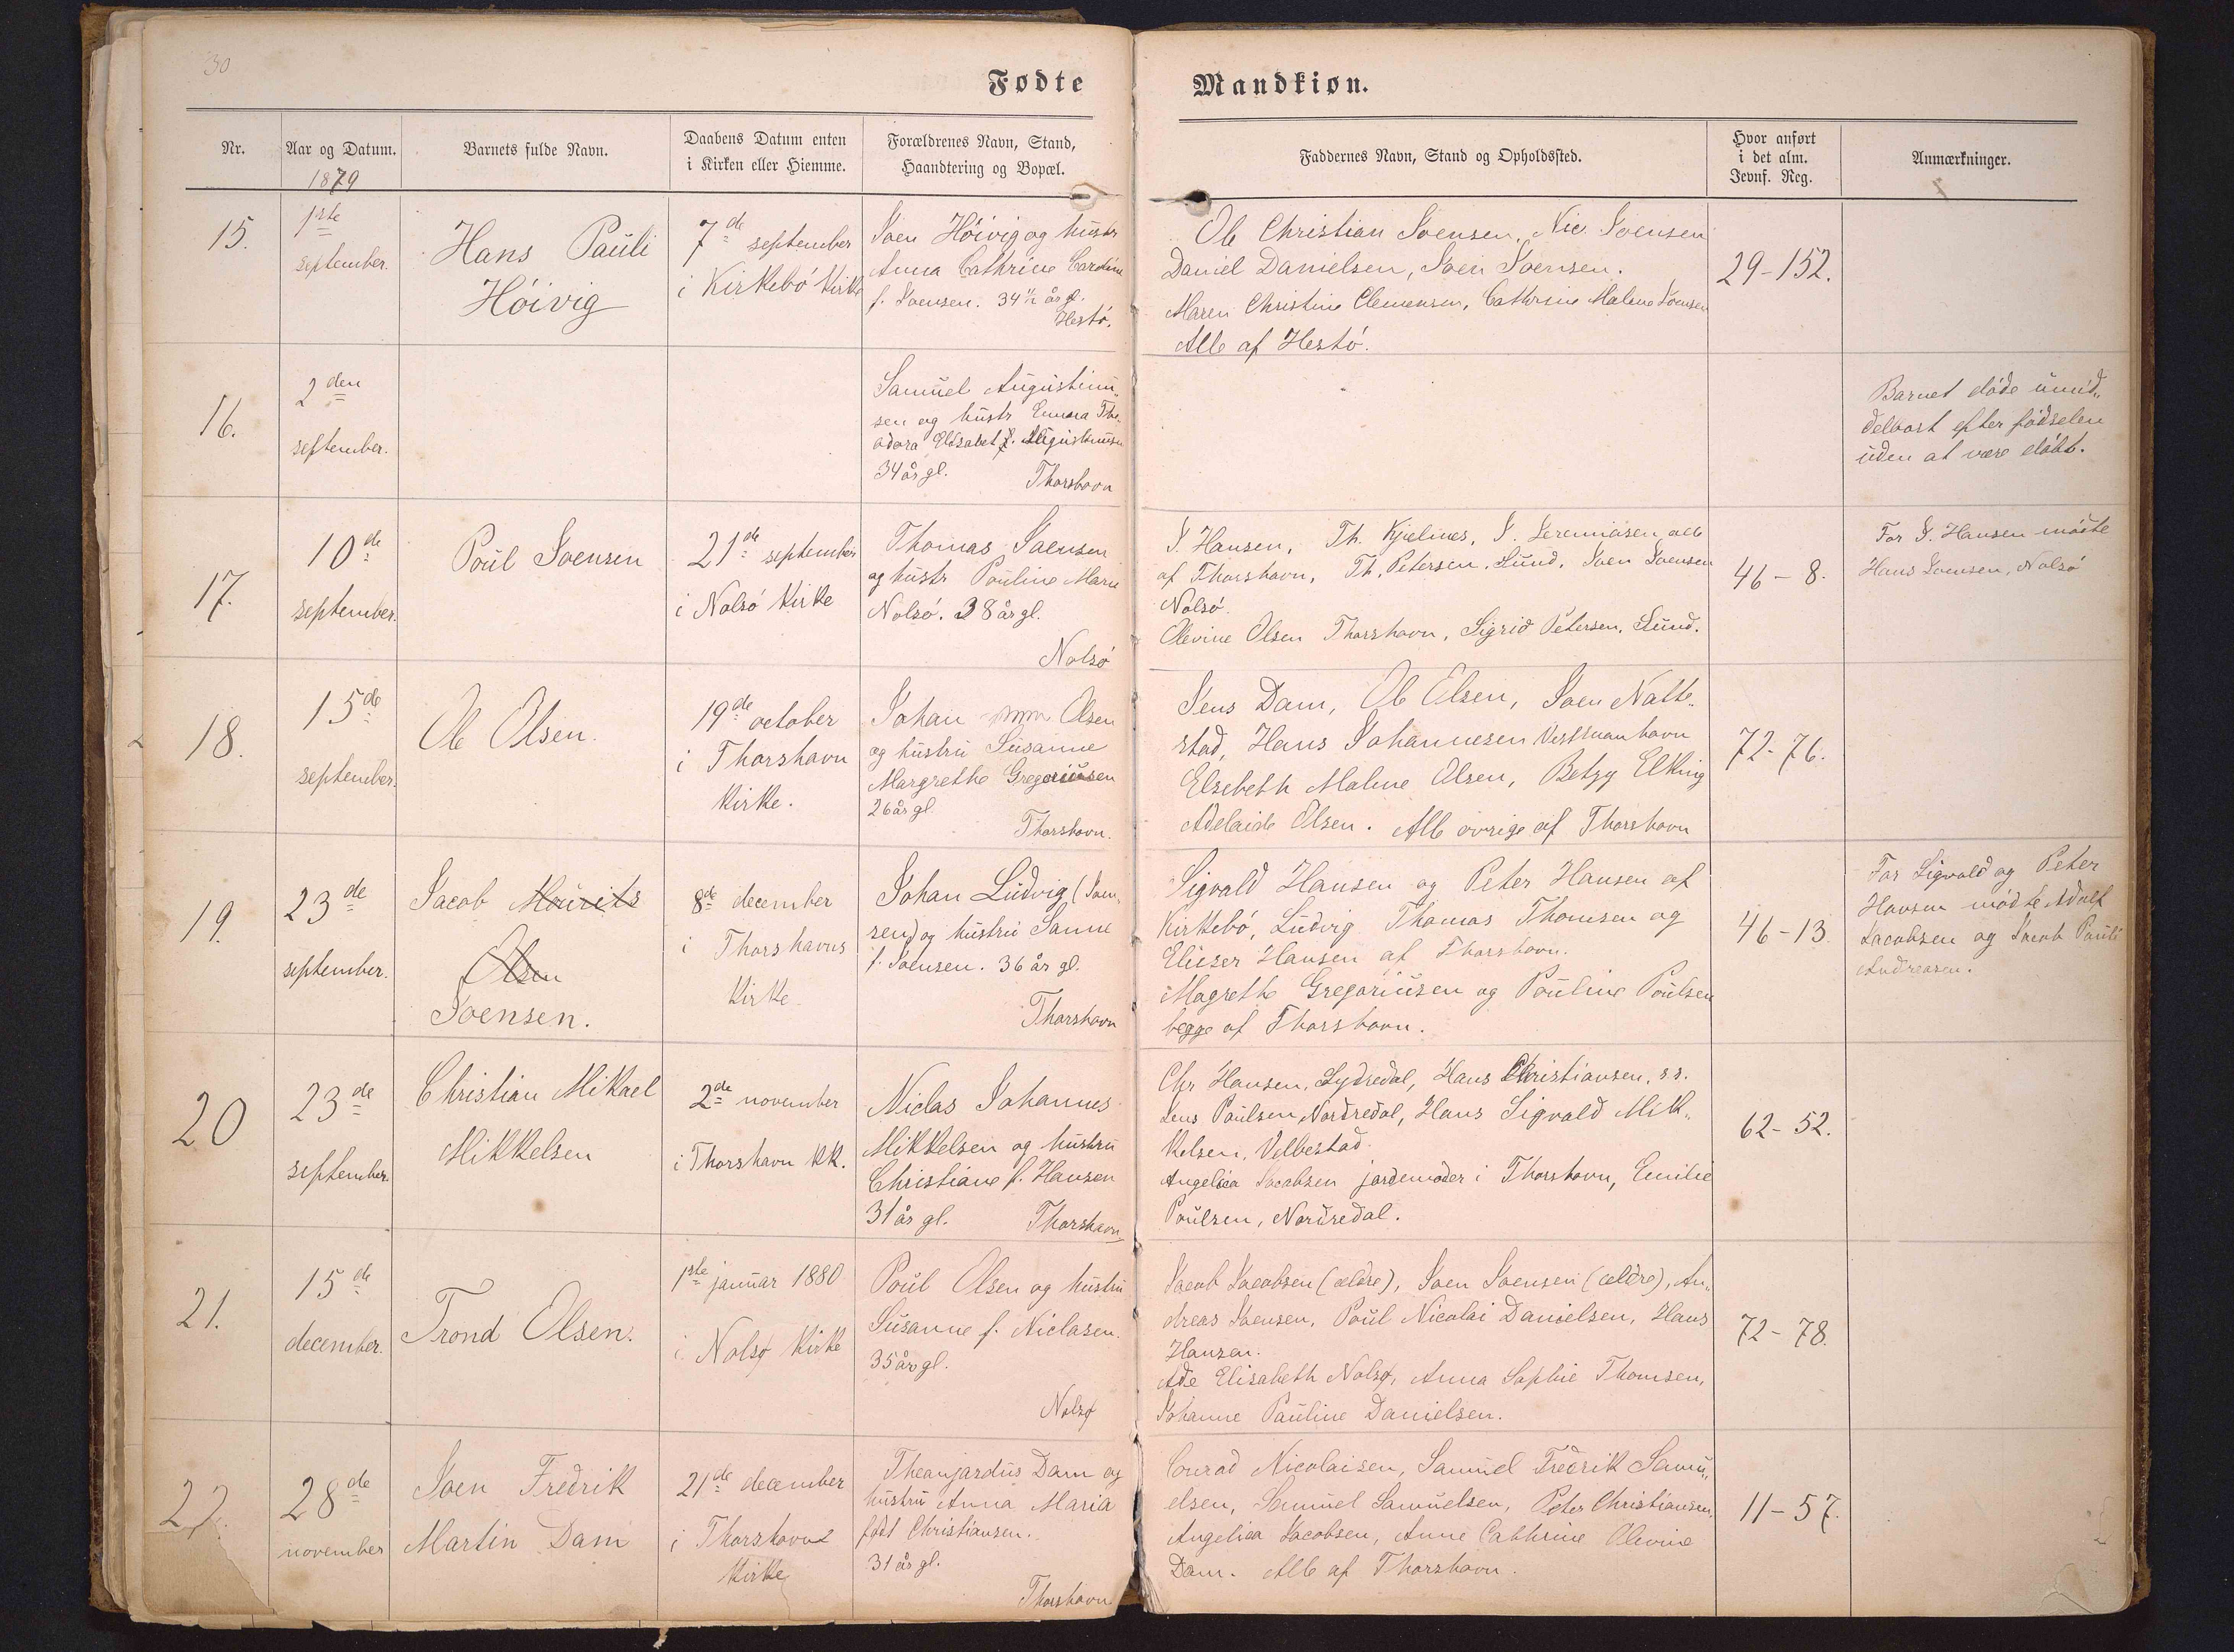 30
Fødte
Mandkiøn.
Nr.
Aar og Datum.
1879
Barnets fulde Navn.
Daabens Datum enten
i Kirken eller Hiemme.
Forældrenes Navn, Stand,
Haandtering og Bopæl.
Faddernes Navn, Stand og Opholdssted.
Hvor anført
i det alm.
Jevnf. Reg.
Anmærkninger.
15.
1ste
september.
Hans Pauli
Höivig
7de september
i Kirkebö Kirke
Joen Höivig og hustr
Anna Cathrine Caroline
f. Joensen. 34½ år gl.
Hestö.
Ole Christian Joensen, Nic. Joensen
Daniel Danielsen, Joen Joensen.
Maren Christine Clemensen, Cathrine Malene Joensen
Alle af Hestö.
29-152.
16.
2den
september.
Samuel Augustinu„
sen og hustr Emma The„
odora Elisabet f. Augustinusen
34 år gl.
Thorshavn
Barnet döde umid„
delbart efter födselen
uden at være döbt.
17.
10de
september.
Poul Joensen
21de september
i Nolsö Kirke
Thomas Joensen
og hustr Pouline Marie
Nolsö. 38 år gl.
Nolsö
J. Hansen, Th. Kjelnes, J. Jeremiasen, alle
af Thorshavn, Th. Petersen, Lund, Joen Joensen
Nolsö.
Olevine Olsen Thorshavn, Sigrid Petersen, Lund.
46-8.
For J. Hansen mödte
Hans Joensen, Nolsö
18.
15de
september.
Ole Olsen.
19de october
i Thorshavn
Kirke.
Johan Olsen
og hustru Susanne
Margrethe Gregoriusen
26 år gl.
Thorshavn.
Jens Dam, Ole Olsen, Joen Natte„
stad, Hans Johannesen Vestmanhavn
Elsebeth Malene Olsen, Betzy Elking
Adelaide Olsen. Alle övrige af Thorshavn
72-76.
19.
23de
september.
Jacob Mourits
Olsen
Joensen.
8de december
i Thorshavns
Kirke
Johan Ludvig (Joen„
sen) og hustru Sanne
f. Joensen. 36 år gl.
Thorshavn
Sigvald Hansen og Peter Hansen af
Kirkebö, Ludvig Thomas Thomsen og
Eliezer Hansen af Thorshavn.
Magrethe Gregoriusen og Pouline Poulsen
begge af Thorshavn.
46-13
For Sigvald og Peter
Hansen mödte Adolf
Jacobsen og Jacob Pauli
Andreasen.
20
23de
september.
Christian Mikael
Mikkelsen
2de november
i Thorshavn KK.
Niclas Johannes
Mikkelsen og hustru
Christiane f. Hansen
31 år gl.
Thorshavn
Chr Hansen, Sydredal, Hans Christiansen, ss.
Jens Poulsen, Nordredal, Hans Sigvald Mik„
kelsen, Velbestad.
Angelica Jacobsen jordemoder i Thorshavn, Emilie
Poulsen, Nordredal.
62-52.
21.
15de
december.
Trond Olsen.
1ste januar 1880
i Nolsø Kirke
Poul Olsen og hustru
Susanne f. Niclasen.
35 år gl.
Nolsø
Jacob Jacobsen (ældre), Joen Joensen (ældre), An„
dreas Joensen, Poul Nicolai Danielsen, Hans
Hansen.
Ade Elisabeth Nolsø, Anna Sophie Thomsen,
Johanne Pauline Danielsen.
72-78.
22.
28de
november
Joen Fredrik
Martin Dam
21de december
i Thorshavns
Kirke
Theanjardus Dam og
hustru Anna Maria
født Christiansen.
31 år gl.
Thorshavn
Conrad Nicolaisen, Samuel Fredrik Samu„
elsen, Samuel Samuelsen, Peter Christiansen,
Angelica Jacobsen, Anne Cathrine Olevine
Dam. Alle af Thorshavn.
11-57.